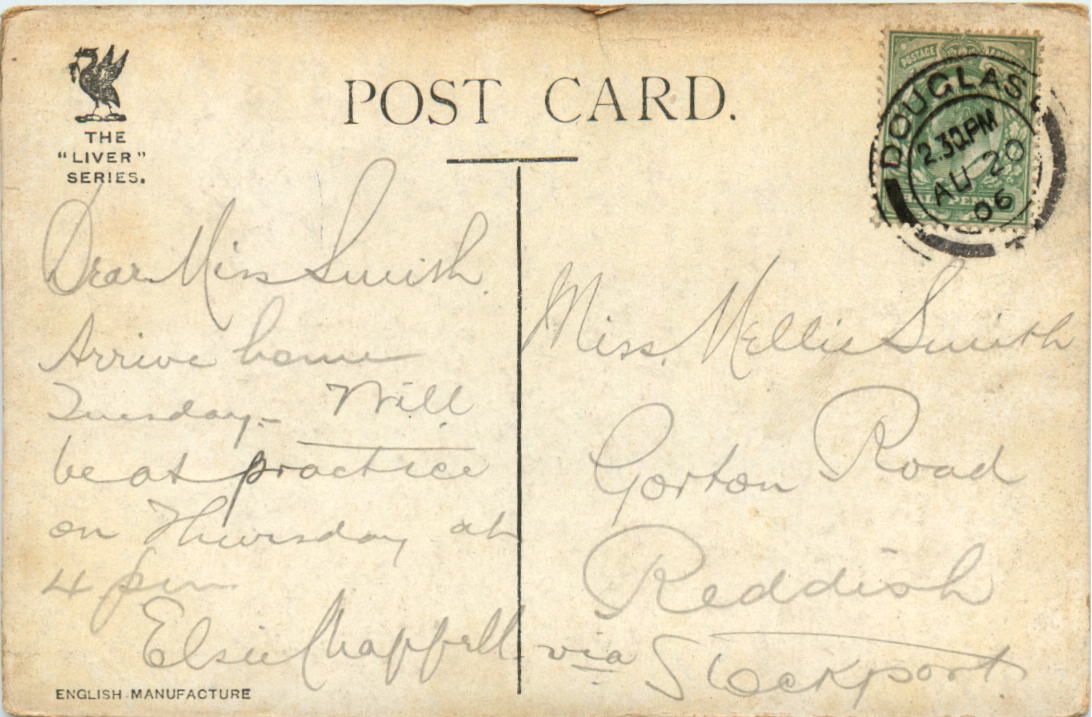 THE
"LIVER"
SERIES.
POST CARD.
DOUGLAS
2.30PM
AU 20
06
POSTAGE
Dear Miss Smith
Arrive home
Tuesday - Will
be at practice
on Thursday at
4 pm
Elsie Chappell
Miss. Nellie Smith
Gorton Road
Reddish
via Stockport
ENGLISH MANUFACTURE